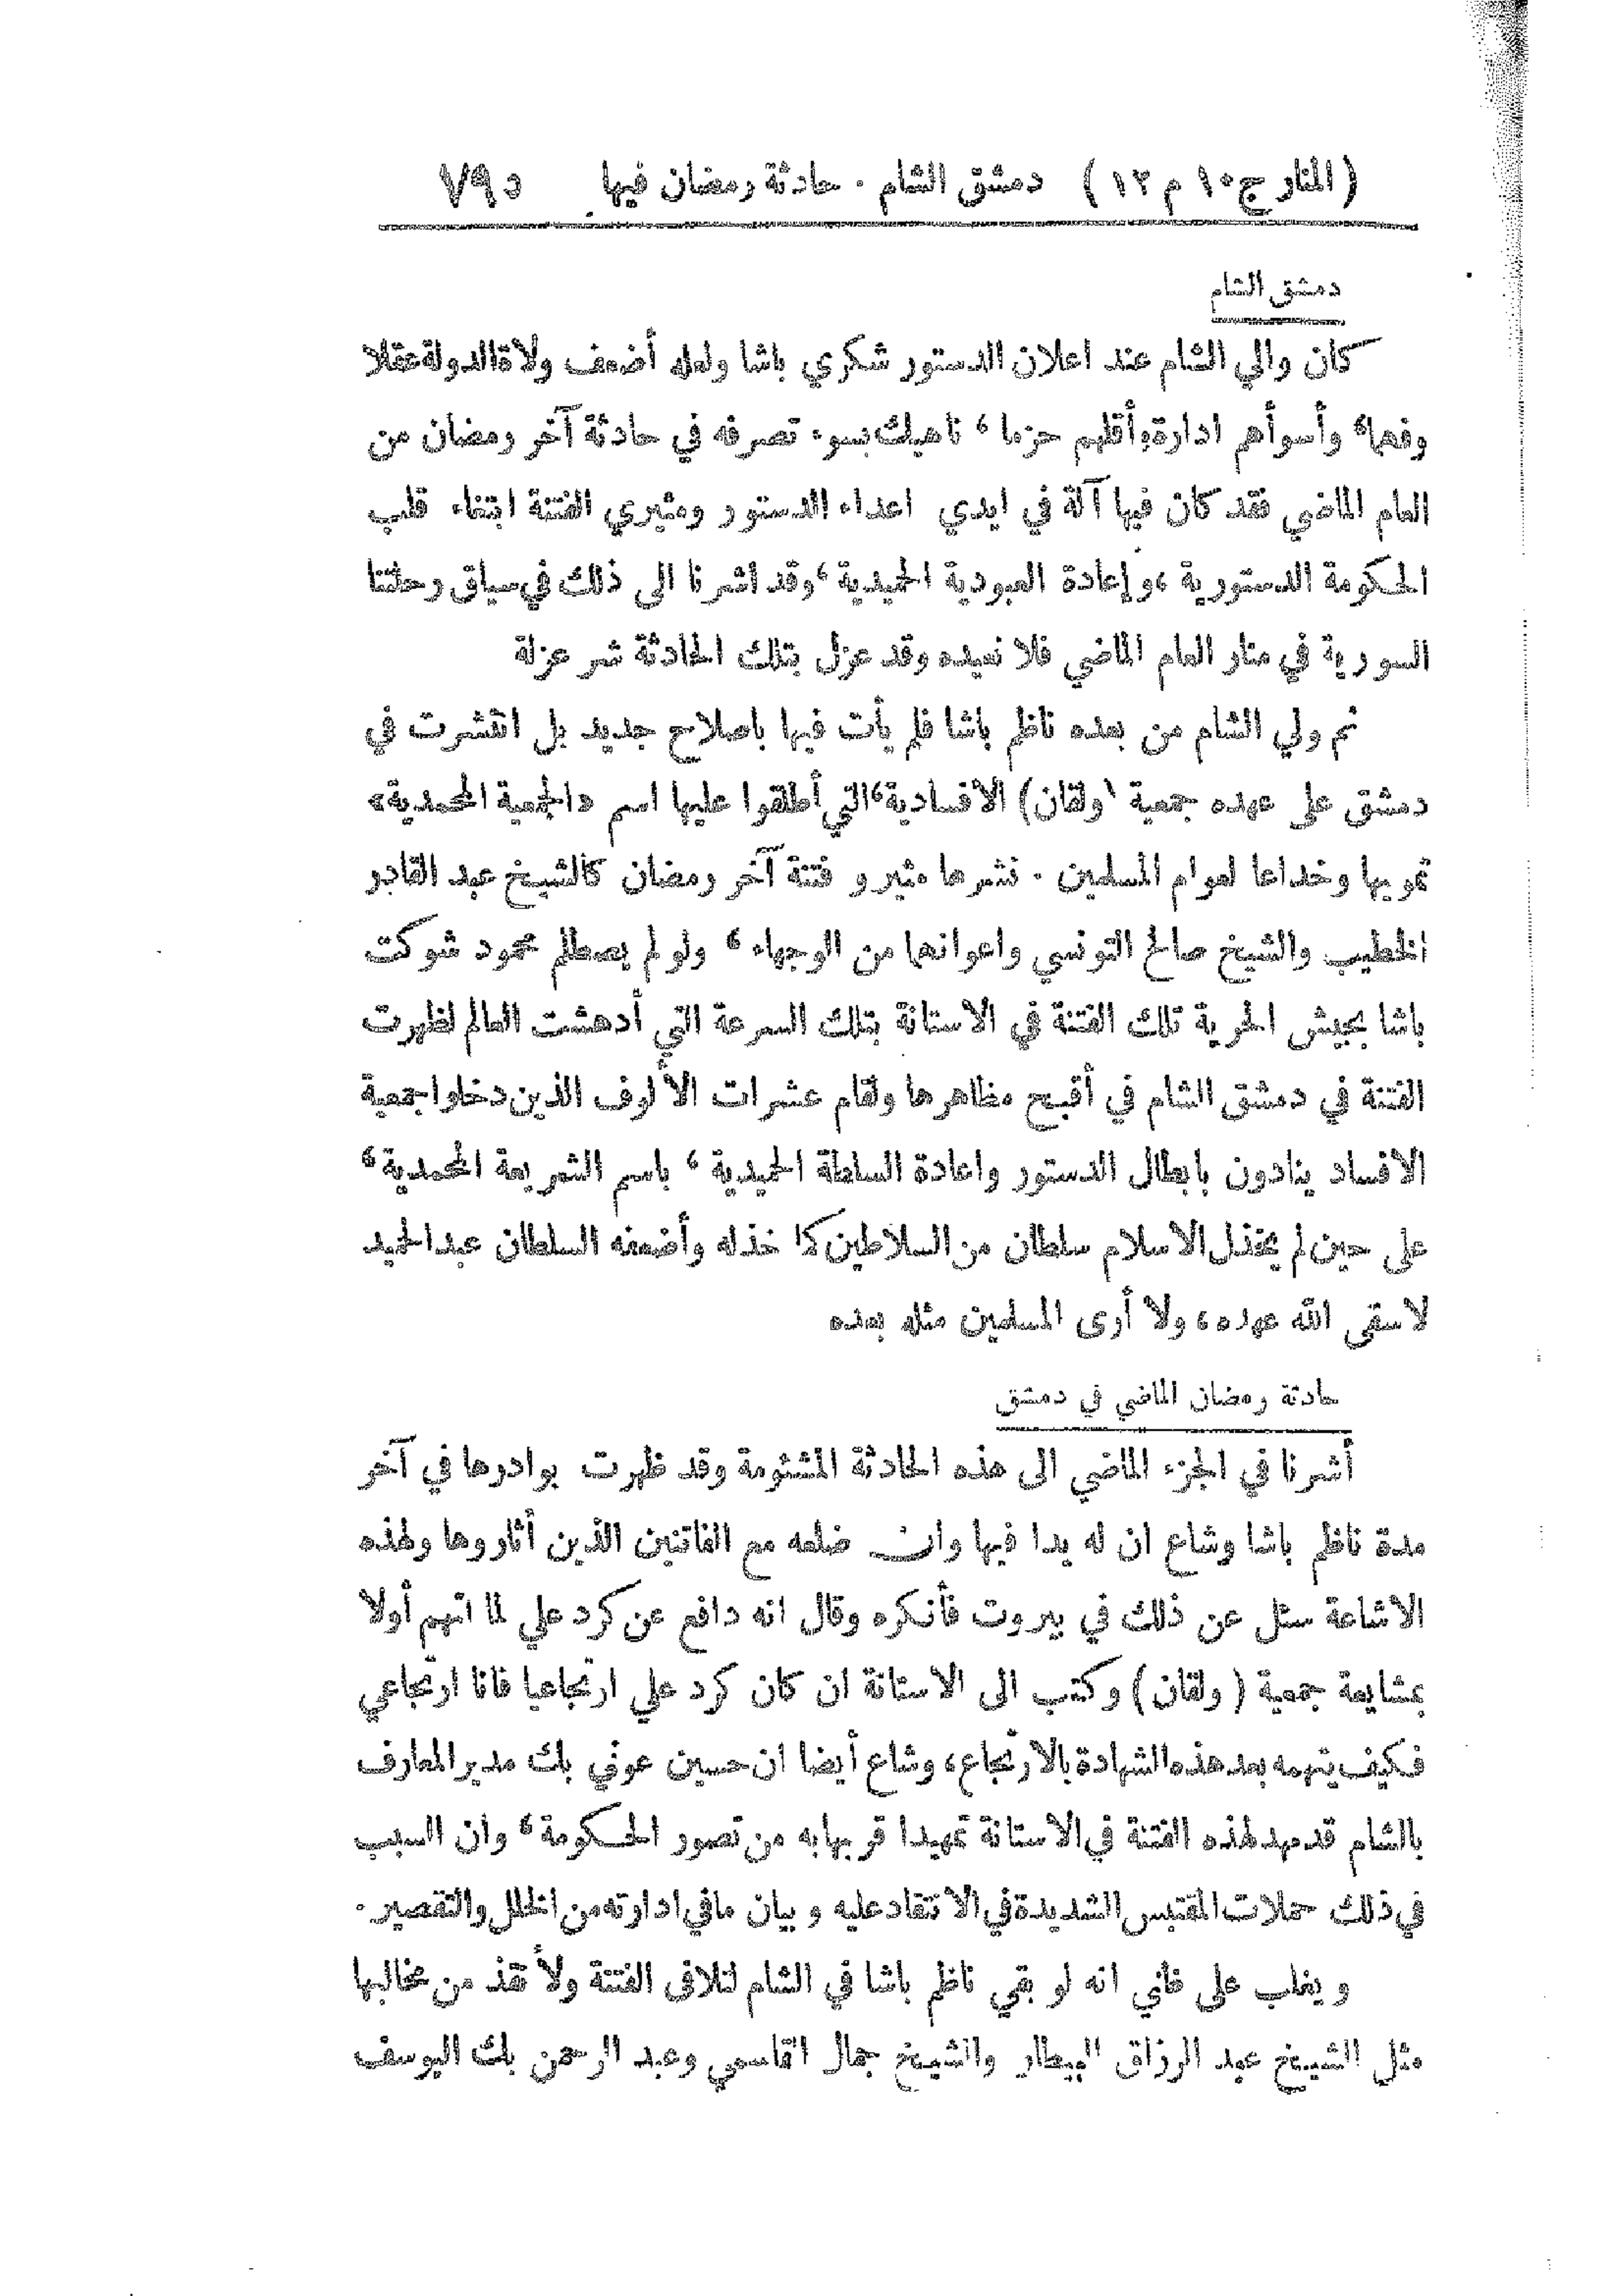 (المنار ج ١٠ م ١٢) دمشق الشام . حادثة رمضان فيها ٧٩٥
دمشق الشام
كان والي الشام عند اعلان الدستور شكري باشا ولعله أضعف ولاة الدولة عقلا
وفهما، وأسوأهم ادارة وأقلهم حزما، ناهيك بسوء تصرفه في حادثة آخر رمضان من
العام الماضي فقد كان فيها آلة في ايدي اعداء الدستور ومثيري الفتنة ابتغاء قلب
الحكومة الدستورية، وإعادة العبودية الحميدية، وقد اشرنا الى ذلك في سياق رحلتنا
السورية في منار العام الماضي فلا نعيده وقد عزل بتلك الحادثة شر عزلة
ثم ولي الشام من بعده ناظم باشا فلم يأت فيها باصلاح جديد بل انتشرت في
دمشق على عهده جمعية (ولقان) الافسادية، التي أطلقوا عليها اسم «الجمعية المحمدية»
تمويها وخداعا لعوام المسلمين . نشرها مثيرو فتنة آخر رمضان كالشيخ عبد القادر
الخطيب والشيخ صالح التونسي واعوانهما من الوجهاء، ولو لم يصطلم محمود شوكت
باشا بجيش الحرية تلك الفتنة في الاستانة بتلك السرعة التي أدهشت العالم لظهرت
الفتنة في دمشق الشام في أقبح مظاهرها ولقام عشرات الألوف الذين دخلوا جمعية
الافساد ينادون بابطال الدستور واعادة السلطة الحميدية، باسم الشريعة المحمدية،
على حين لم يخذل الاسلام سلطان من السلاطين كما خذله وأضعفه السلطان عبد الحميد
لا سقى الله عهده، ولا أرى المسلمين مثله بعده
حادثة رمضان الماضي في دمشق
أشرنا في الجزء الماضي الى هذه الحادثة المشئومة وقد ظهرت بوادرها في آخر
مدة ناظم باشا وشاع ان له يدا فيها وان ضلعه مع الفاتنين الذين أثاروها ولهذه
الاشاعة سئل عن ذلك في بيروت فأنكره وقال انه دافع عن كرد علي لما اتهم أولا
بمشايعة جمعية (ولقان) وكتب الى الاستانة ان كان كرد علي ارتجاعيا فانا ارتجاعي
فكيف يتهمه بعد هذه الشهادة بالارتجاع، وشاع أيضا ان حسين عوني بك مدير المعارف
بالشام قد مهد لهذه الفتنة في الاستانة تمهيدا قربها به من تصور الحكومة، وان السبب
في ذلك حملات المقتبس الشديدة في الانتقاد عليه وبيان ما في ادارته من الخلل والتقصير .
ويغلب على ظني انه لو بقي ناظم باشا في الشام لتلافى الفتنة ولأنقذ من مخالبها
مثل الشيخ عبد الرزاق البيطار والشيخ جمال القاسمي وعبد الرحمن بك اليوسف